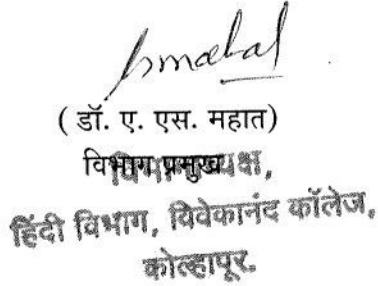 ( डॉ. ए. एस. महात)
विभाग प्रमुख
हिंदी विभाग, विवेकानंद कॉलेज,
कोल्हापूर.